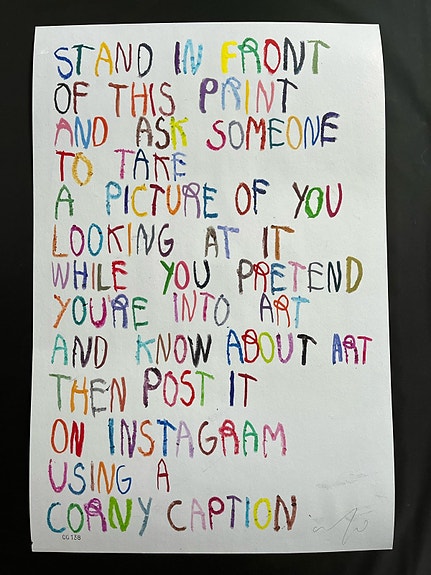 STAND IN FRONT
OF THIS PRINT
AND ASK SOMEONE
TO TAKE
A PICTURE OF YOU
LOOKING AT IT
WHILE YOU PRETEND
YOU'RE INTO ART
AND KNOW ABOUT ART
THEN POST IT
ON INSTAGRAM
USING A
CORNY CAPTION
CC138